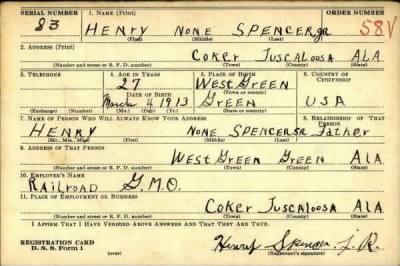 SERIAL NUMBER 1. NAME (Print) ORDER NUMBER
83 HENRY NONE SPENCER, JR 58V
(First) (Middle) (Last)
2. ADDRESS (Print)
COKER TUSCALOOSA ALA
(Number and street or R. F. D. number) (Town) (County) (State)
3. TELEPHONE 4. AGE IN YEARS 5. PLACE OF BIRTH 6. COUNTRY OF CITIZENSHIP
27 WEST GREEN
DATE OF BIRTH (Town or county)
March 4 1913 GREEN USA
(Exchange) (Number) (Mo.) (Day) (Yr.) (State or country)
7. NAME OF PERSON WHO WILL ALWAYS KNOW YOUR ADDRESS 8. RELATIONSHIP OF THAT PERSON
HENRY NONE SPENCER SR Father
(Mr., Mrs., Miss) (First) (Middle) (Last)
9. ADDRESS OF THAT PERSON
WEST GREEN GREEN ALA
(Number and street or R. F. D. number) (Town) (County) (State)
10. EMPLOYER'S NAME
RAILROAD G.M.O.
11. PLACE OF EMPLOYMENT OR BUSINESS
COKER TUSCALOOSA ALA
(Number and street or R. F. D. number) (Town) (County) (State)
I AFFIRM THAT I HAVE VERIFIED ABOVE ANSWERS AND THAT THEY ARE TRUE.
REGISTRATION CARD Henry Spencer J.R.
D. S. S. Form 1 (over) (Registrant's signature)